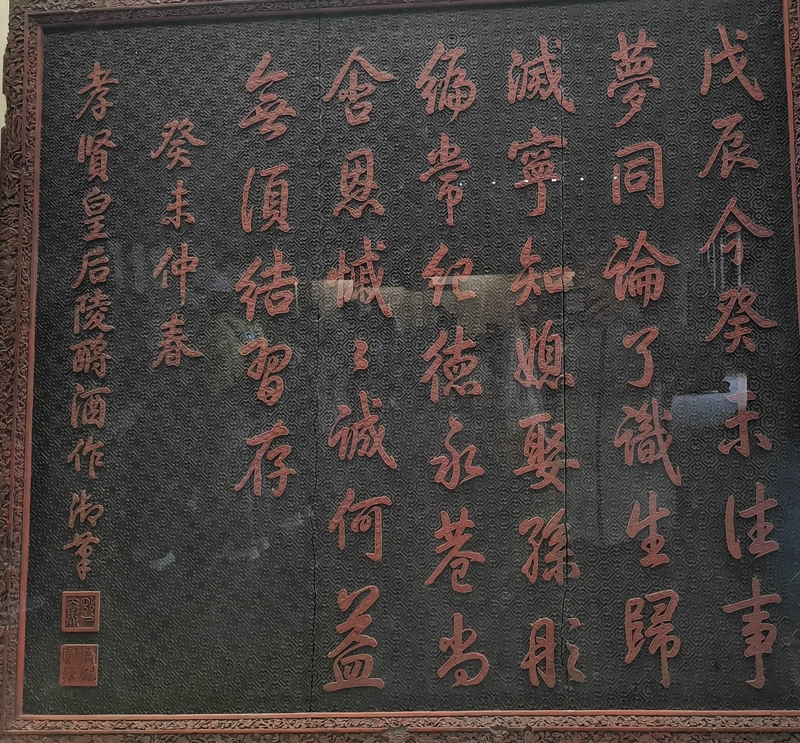 戊辰今癸未往事
夢同論了識生歸
滅寧知媳娶孫彤
編常紀德永巷尚
含恩憾〻誠何益
無須結習存
癸未仲春
孝賢皇后陵酹酒作御筆